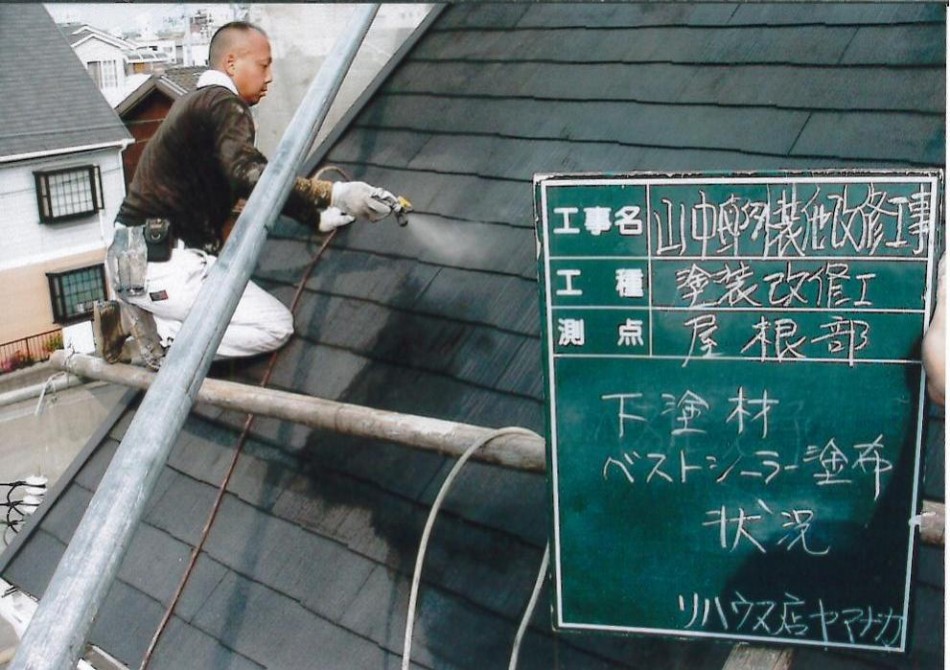 工事名 山中邸外装他改修工事
工種 塗装改修工
測点 屋根部
下塗材
ベストシーラー塗布
状況
リハウス店ヤマナカ